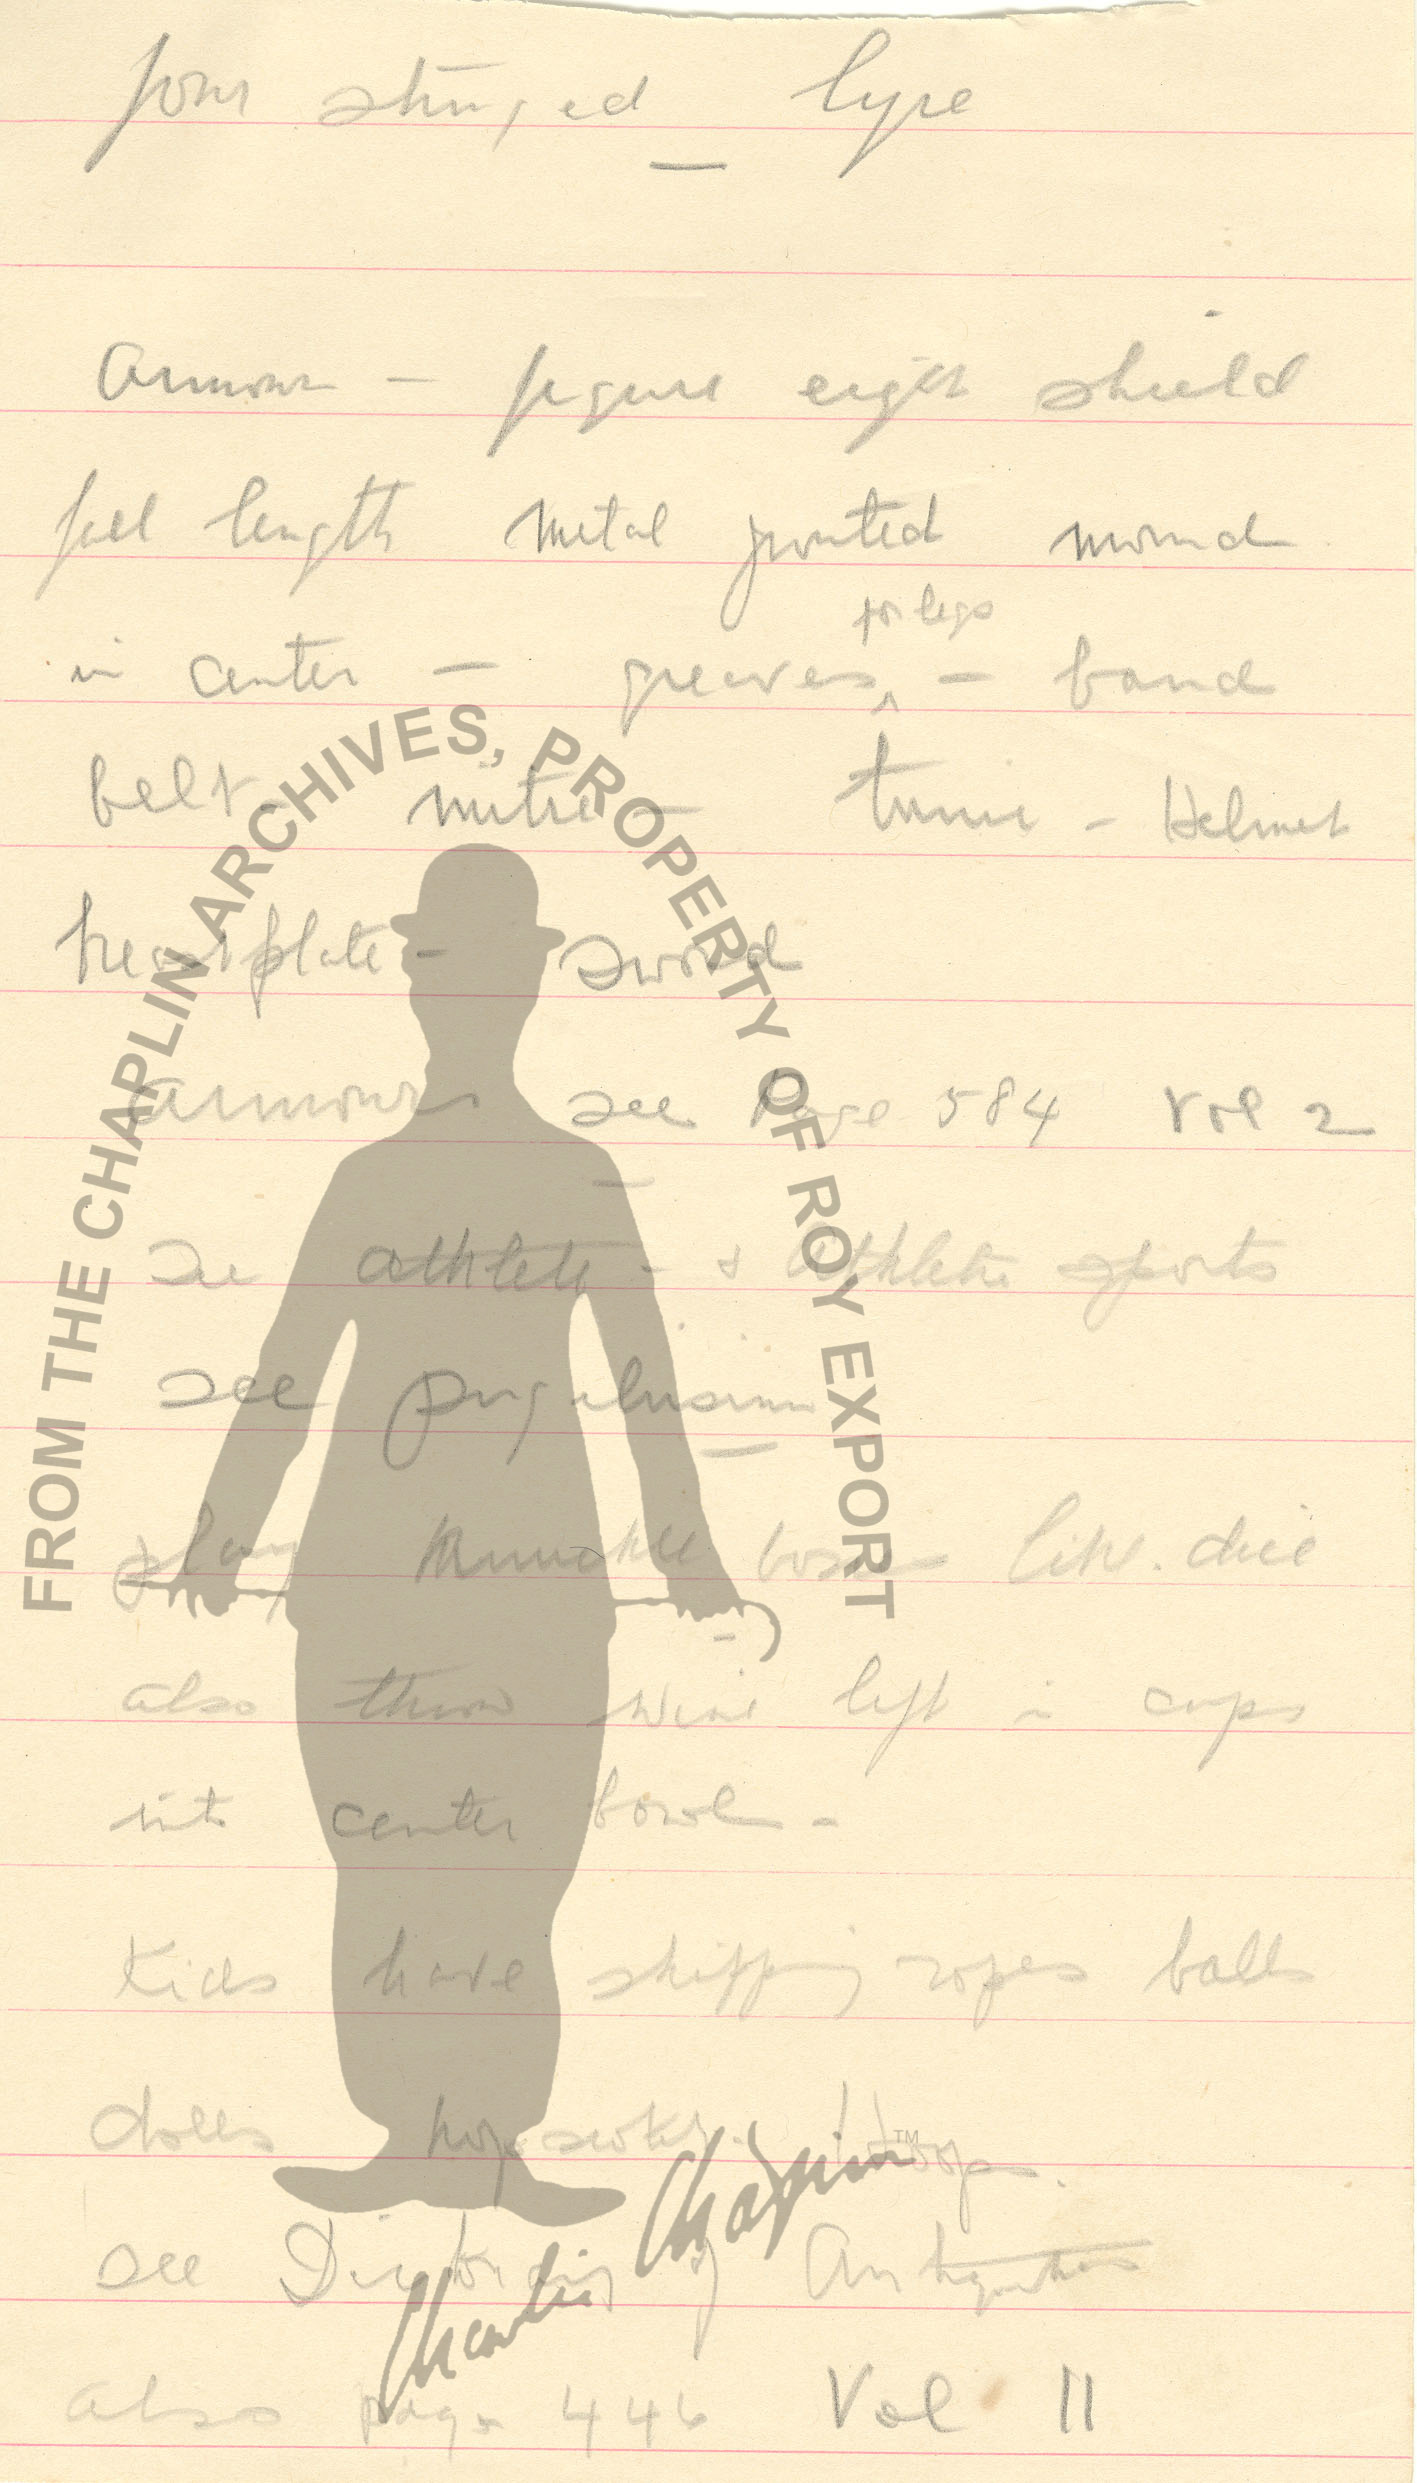 four stringed lyre
Armour – figure eight shield
full length metal jointed mound
in center – greaves ^ for legs – band
belt – mitre – tunic – Helmet
breastplate – sword
armour see page 584 Vol 2
See athlete – & athletic sports
see pugilism
play knuckle bones like dice
also throw wine left in cups
into center bowl –
Kids have skipping ropes balls
dolls hoops.
see Dictionary of Antiquities
also page 446 Vol II
FROM THE CHAPLIN ARCHIVES, PROPERTY OF ROY EXPORT
Charlie Chaplin™